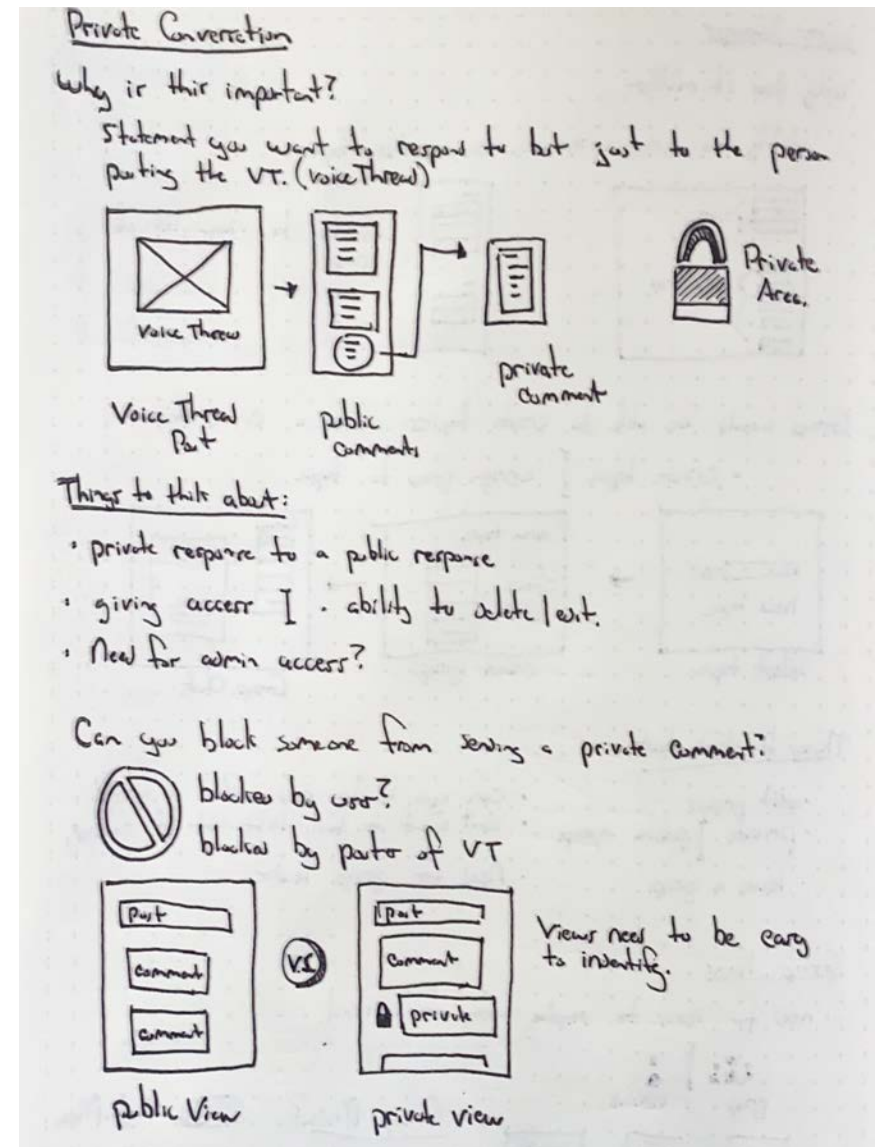 Private Conversation
Why is this important?
Statement you want to respond to but just to the person
posting the VT. (VoiceThread)
Voice Thread
Private
Area.
private
comment
Voice Thread
Post
public
comments
Things to think about:
• private response to a public response
• giving access I • ability to delete | edit.
• Need for admin access?
Can you block someone from sending a private comment?
blocked by user?
blocked by poster of VT
Post
comment
comment
V.S
Post
comment
private
Views need to be easy
to indentify.
public View
private view